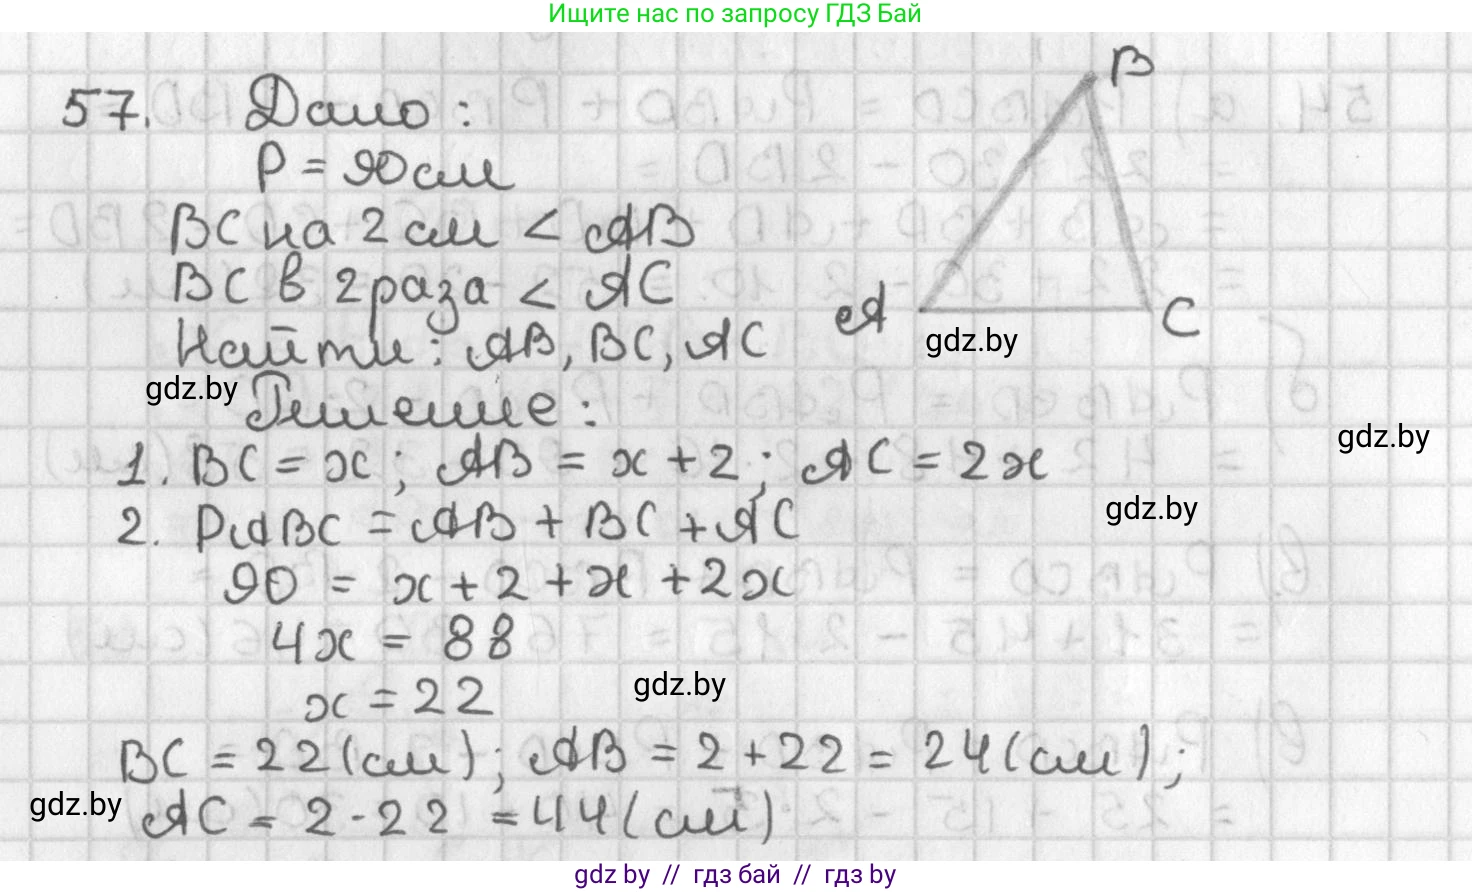 Ищите нас по запросу ГДЗ Бай
57. Дано:
P = 90 см
BC на 2 см < AB
BC в 2 раза < AC
Найти: AB, BC, AC
Решение:
1. BC = x; AB = x + 2; AC = 2x
2. PABC = AB + BC + AC
90 = x + 2 + x + 2x
4x = 88
x = 22
BC = 22 (см); AB = 2 + 22 = 24 (см);
AC = 2 · 22 = 44 (см)
B
A
C
gdz.by
gdz.by
gdz.by
gdz.by
gdz.by
gdz.by
gdz by // гдз бай // гдз by